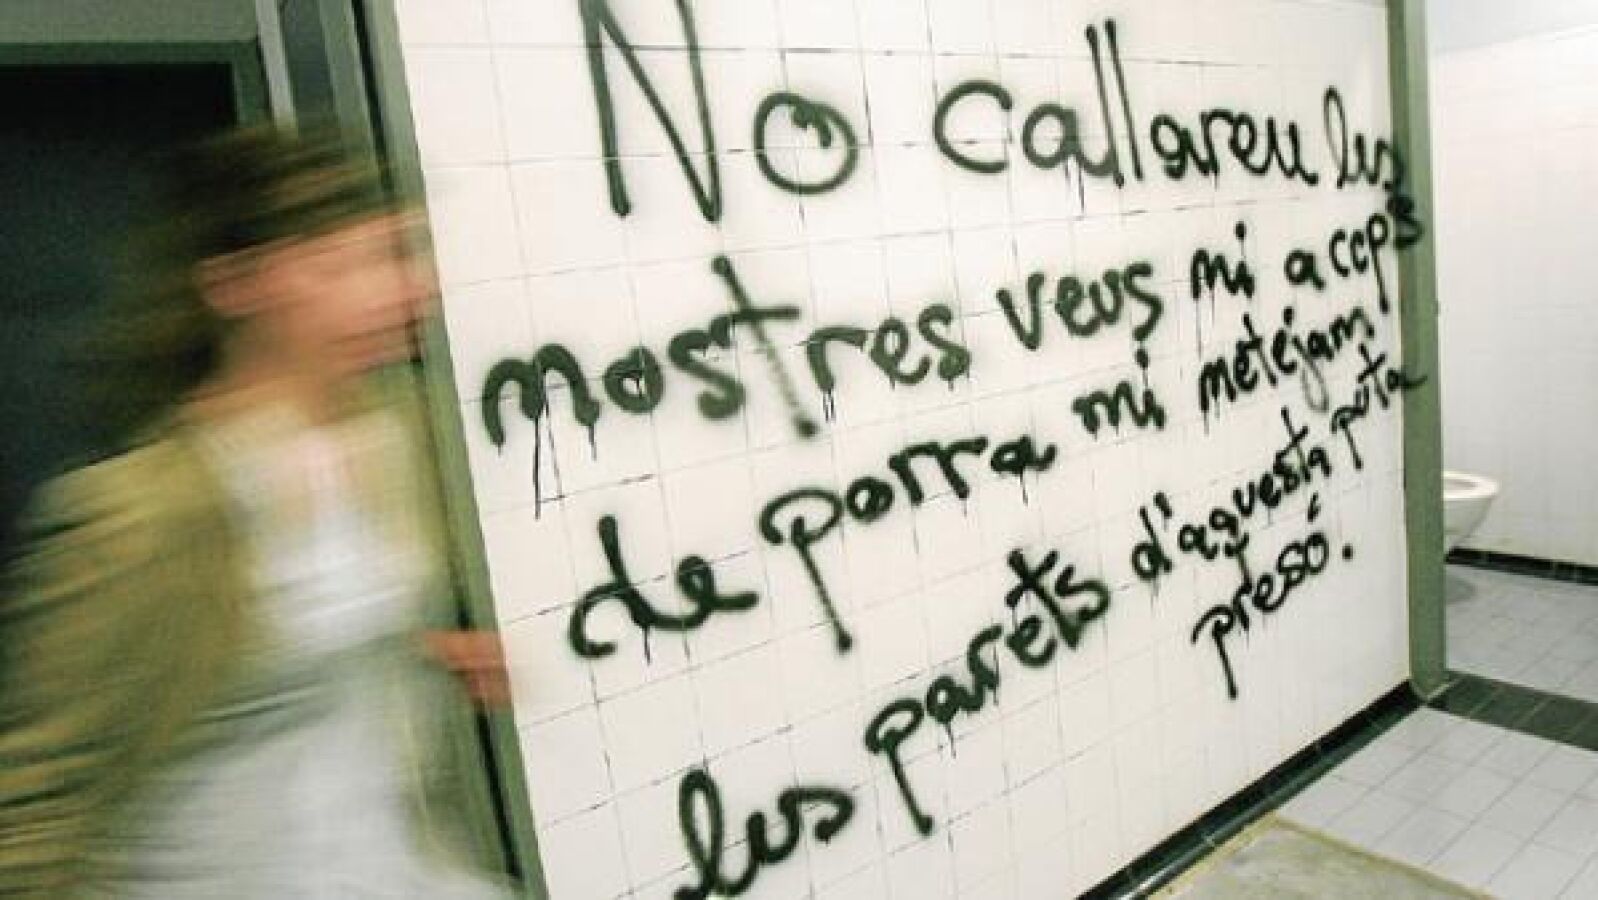 No callareu les
nostres veus ni a cops
de porra ni netejant
les parets d'aquesta puta
presó.